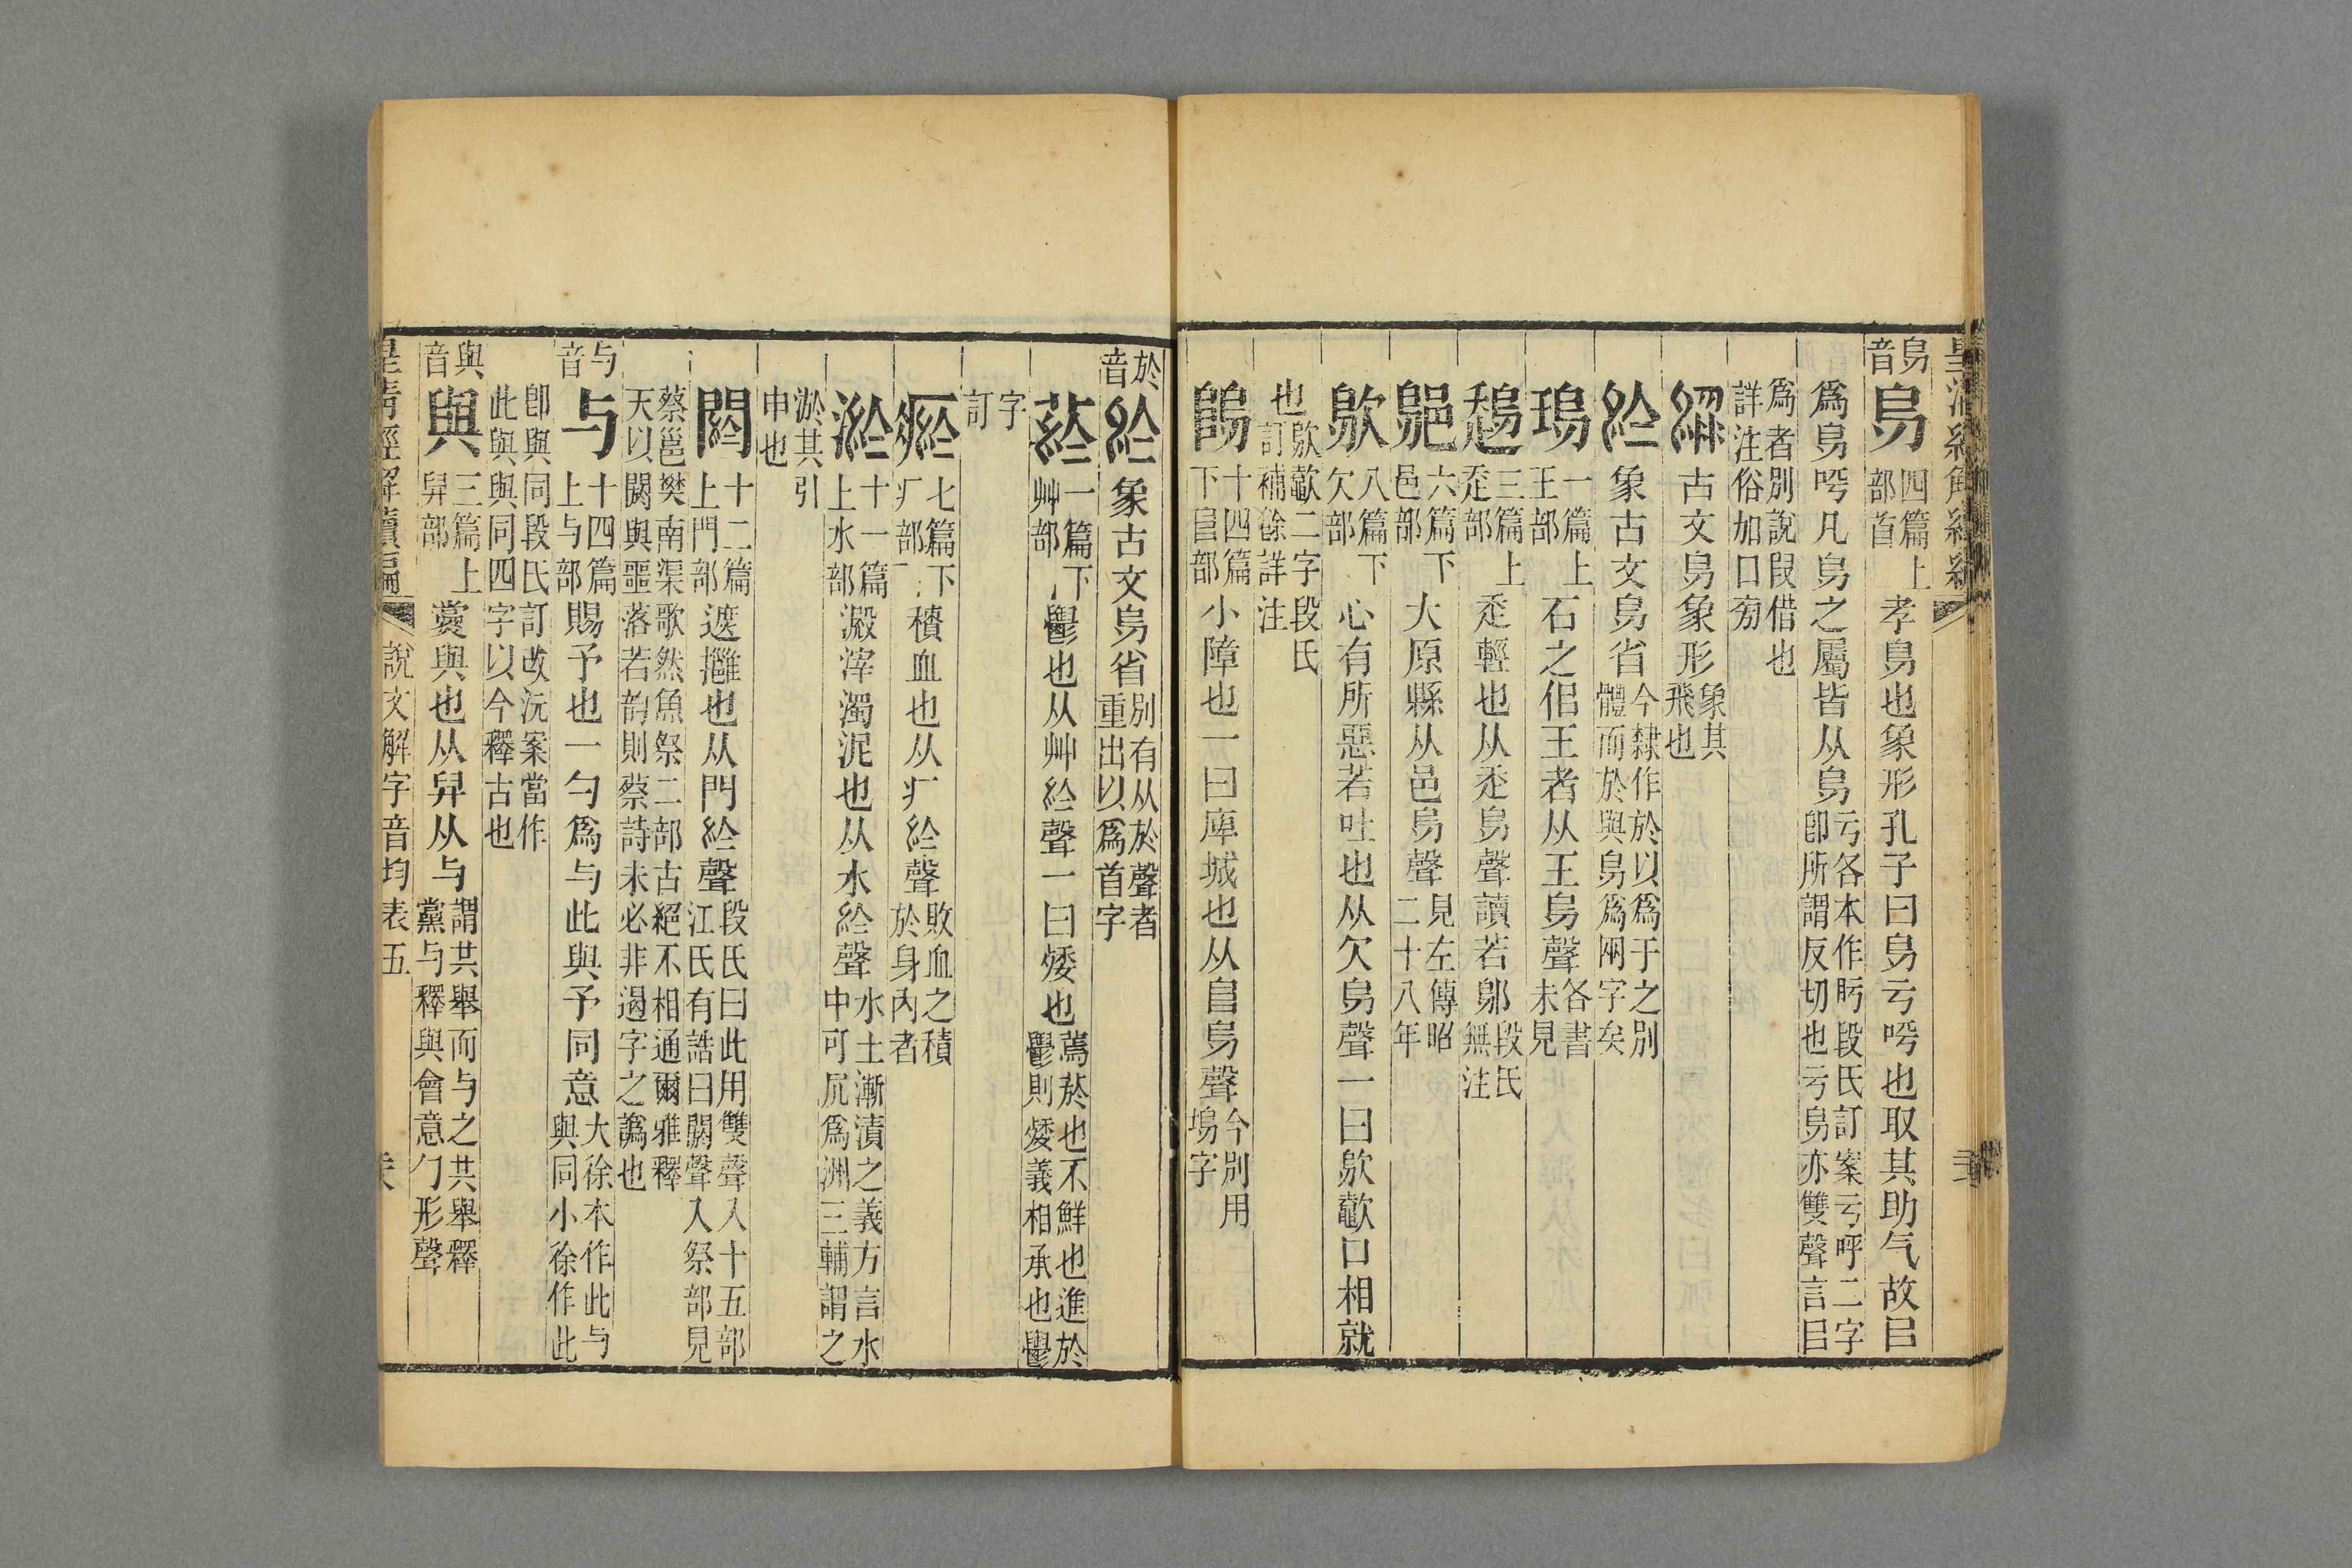 舄音 舄 四篇上部首 孝舄也象形孔子曰舄亏呺也取其助气故㠯
爲舄呺凡舄之屬皆从舄 亏各本作盱段氏訂案亏呼二字卽所謂反切也亏舄亦雙聲言㠯
爲者別說叚借也詳注俗加口㫄
古文舄象形 象其飛也
象古文舄省 今隸作於以爲于之別體而於與舄爲兩字矣
一篇上王部 石之佀王者从王舄聲 各書未見
三篇上 輕也从 舄聲讀若鄔 段氏無注
六篇下邑部 大原縣从邑舄聲 見左傳昭二十八年
歍 八篇下欠部 心有所惡若吐也从欠舄聲一曰歍歑口相就
也 歍歑二字段氏訂補餘詳注
十四篇下𨸏部 小障也一曰庳城也从𨸏舄聲 今別用塢字
於音 象古文舄省 別有从於聲者重出以爲首字
菸 一篇下艸部 鬱也从艸 聲一曰矮也 蔫菸也不鮮也進於鬱則矮義相承也鬱
字訂
瘀 七篇下疒部 積血也从疒 聲 敗血之積於身內者
淤 十一篇上水部 澱滓濁泥也从水 聲 水土漸漬之義方言水中可凥爲洲三輔謂之
淤其引申也
閼 十二篇上門部 遮攤也从門 聲 段氏曰此用雙聲入十五部江氏有誥曰閼聲入祭部見
蔡邕樊南渠歌然魚祭二部古絕不相通爾雅釋天以閼與噩落若韵則蔡詩未必非遏字之譌也
与音 与 十四篇上与部 賜予也一勺爲与此與予同意 大徐本作此与與同小徐作此
卽與同段氏訂改沅案當作此與與同四字以今釋古也
與音 與 三篇上舁部 黨與也从舁从与 謂共舉而与之共舉釋黨与釋與會意勹形聲
皇淸經解續編 說文解字音均表五